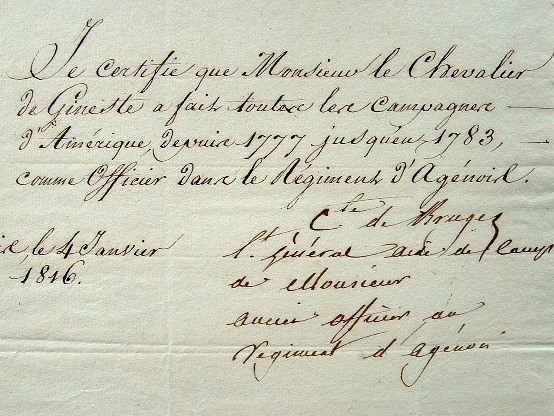 Je certifie que Monsieur le Chevalier
de Gineste a fait toutes les campagnes
d'Amérique, depuis 1777 jusqu'en 1783,
comme Officier dans le Régiment d'Agénois.
Cte de Bruges
lt général aide de Camp
de Monsieur
ancien officier au
régiment d'agénois
le 4 Janvier
1816.